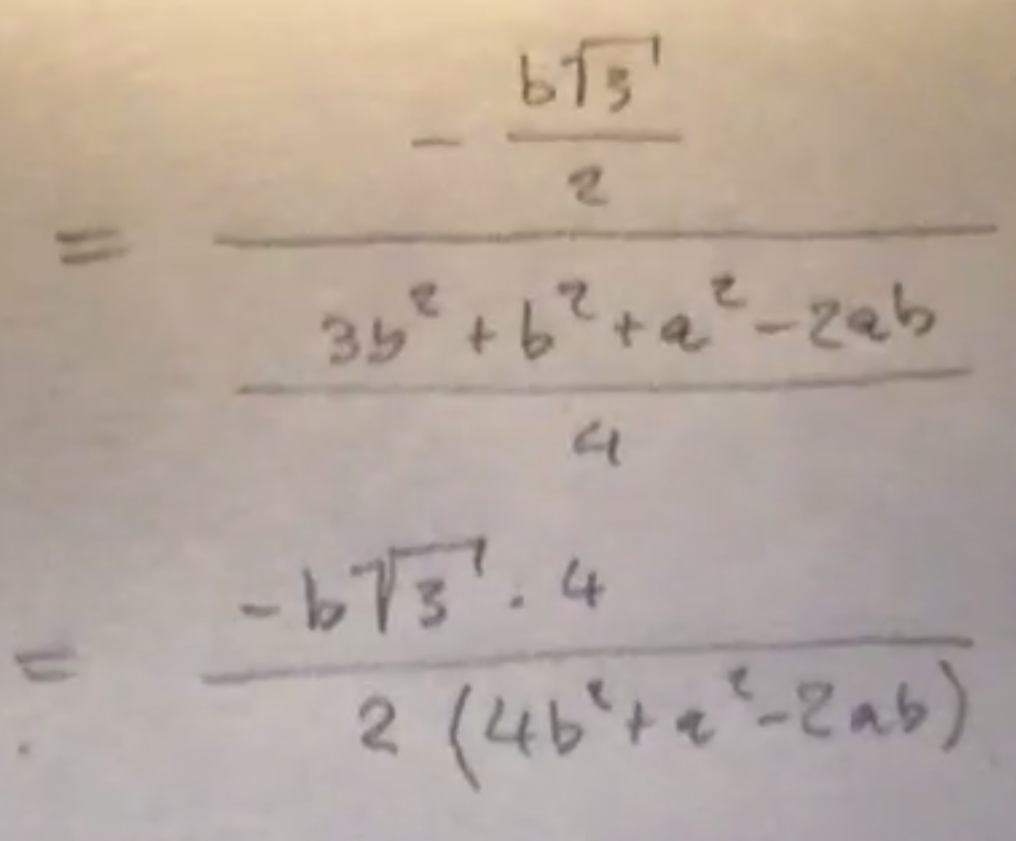 = \frac{-\frac{b\sqrt{3}}{2}}{\frac{3b^2+b^2+a^2-2ab}{4}}
= \frac{-b\sqrt{3} \cdot 4}{2(4b^2+a^2-2ab)}